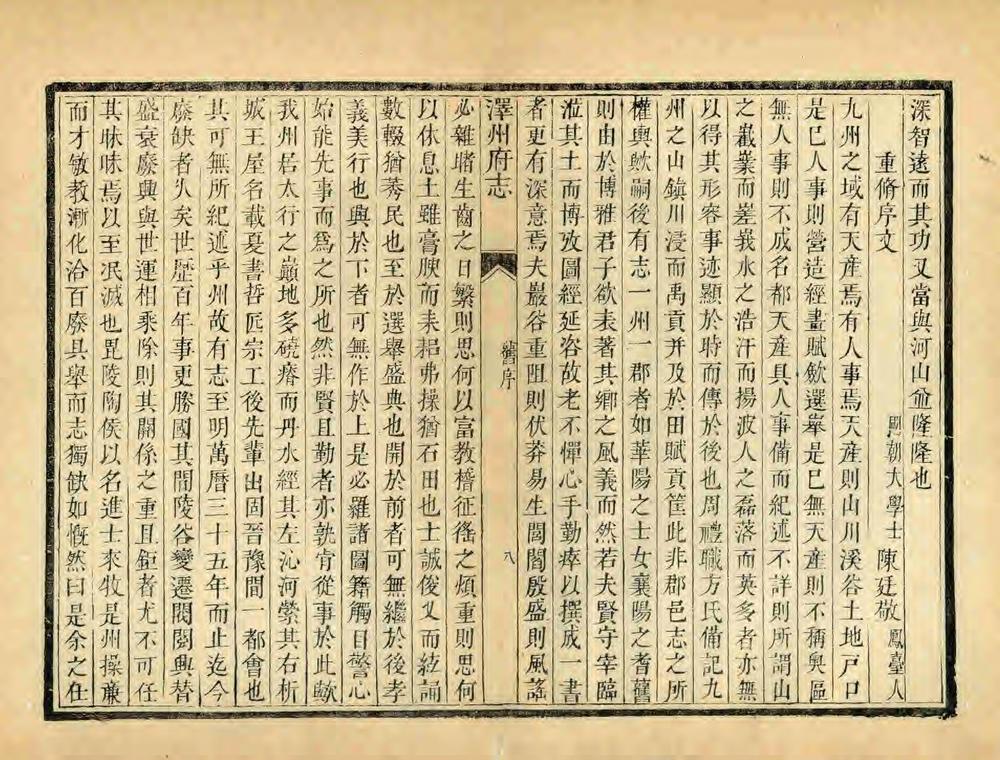 深智遠而其功又當與河山並隆隆也
重脩序文
國朝大學士陳廷敬鳳臺人
九州之域有天產焉有人事焉天產則山川溪谷土地戸口
是巳人事則營造經畫賦斂選舉是巳無天產則不稱輿區
無人事則不成名都天產具人事備而紀述不詳則所謂山
之嶻嶪而嵳峩水之浩汗而揚波人之磊落而英多者亦無
以得其形容事迹顯於時而傳於後也周禮職方氏備記九
州之山鎮川浸而禹貢幷及於田賦貢筐此非郡邑志之所
權輿歟嗣後有志一州一郡者如華陽之士女襄陽之耆舊
則由於博雅君子欲表著其鄉之風義而然若夫賢守宰臨
涖其土而博攷圖經延咨故老不憚心手勤瘁以撰成一書
者更有深意焉夫巖谷重阻則伏莽易生閭閻殷盛則風謠
澤州府志
舊序
八
必雜睹生齒之日繁則思何以富教稽征徭之煩重則思何
以休息土雖膏腴而耒耜弗操猶石田也士誠俊乂而紘誦
數輟猶莠民也至於選舉盛典也開於前者可無繼於後孝
義美行也興於下者可無作於上是必羅諸圖籍觸目警心
始能先事而爲之所也然非賢且勤者亦孰肯從事於此歟
我州居太行之巔地多磽瘠而丹水經其左沁河縈其右析
城王屋名載夏書哲匠宗工後先輩出固晉豫間一都會也
其可無所紀述乎州故有志至明萬曆三十五年而止迄今
廢缺者乆矣世歷百年事更勝國其間陵谷變遷閥閱興替
盛衰廢興與世運相乘除則其關係之重且鉅者尤不可任
其昧昧焉以至泯滅也毘陵陶侯以名進士來牧是州操亷
而才敏教漸化洽百廢具舉而志獨缺如慨然曰是余之任